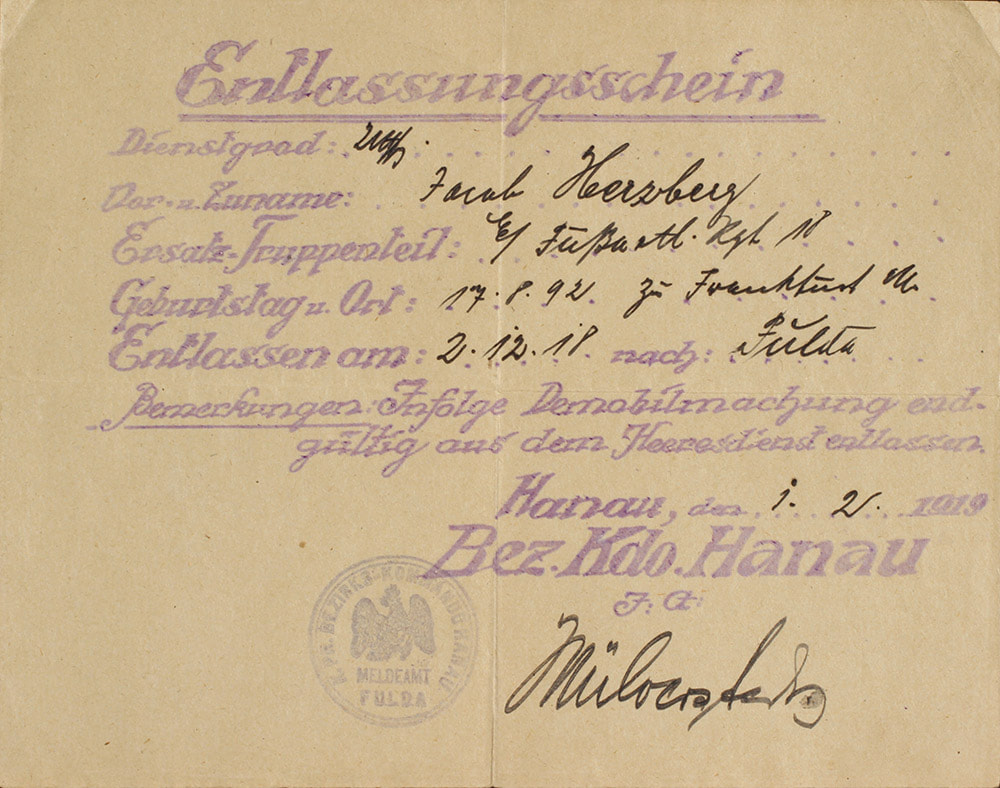 Entlassungsschein
Dienstgrad:
Vor- u. Zuname: Jacob Herzberg
Ersatz-Truppenteil: E/ Fußartl. Rgt 18
Geburtstag u. Ort: 17.8.92. zu Frankfurt M.
Entlassen am: 2.12.18. nach: Fulda
Bemerkungen: Infolge Demobilmachung end-
gültig aus dem Heeresdienst entlassen.
Hanau, den 1. 2. 1919
Bez. Kdo. Hanau
J. A.
BEZIRKS-KOMMANDO HANAU
MELDEAMT
FULDA